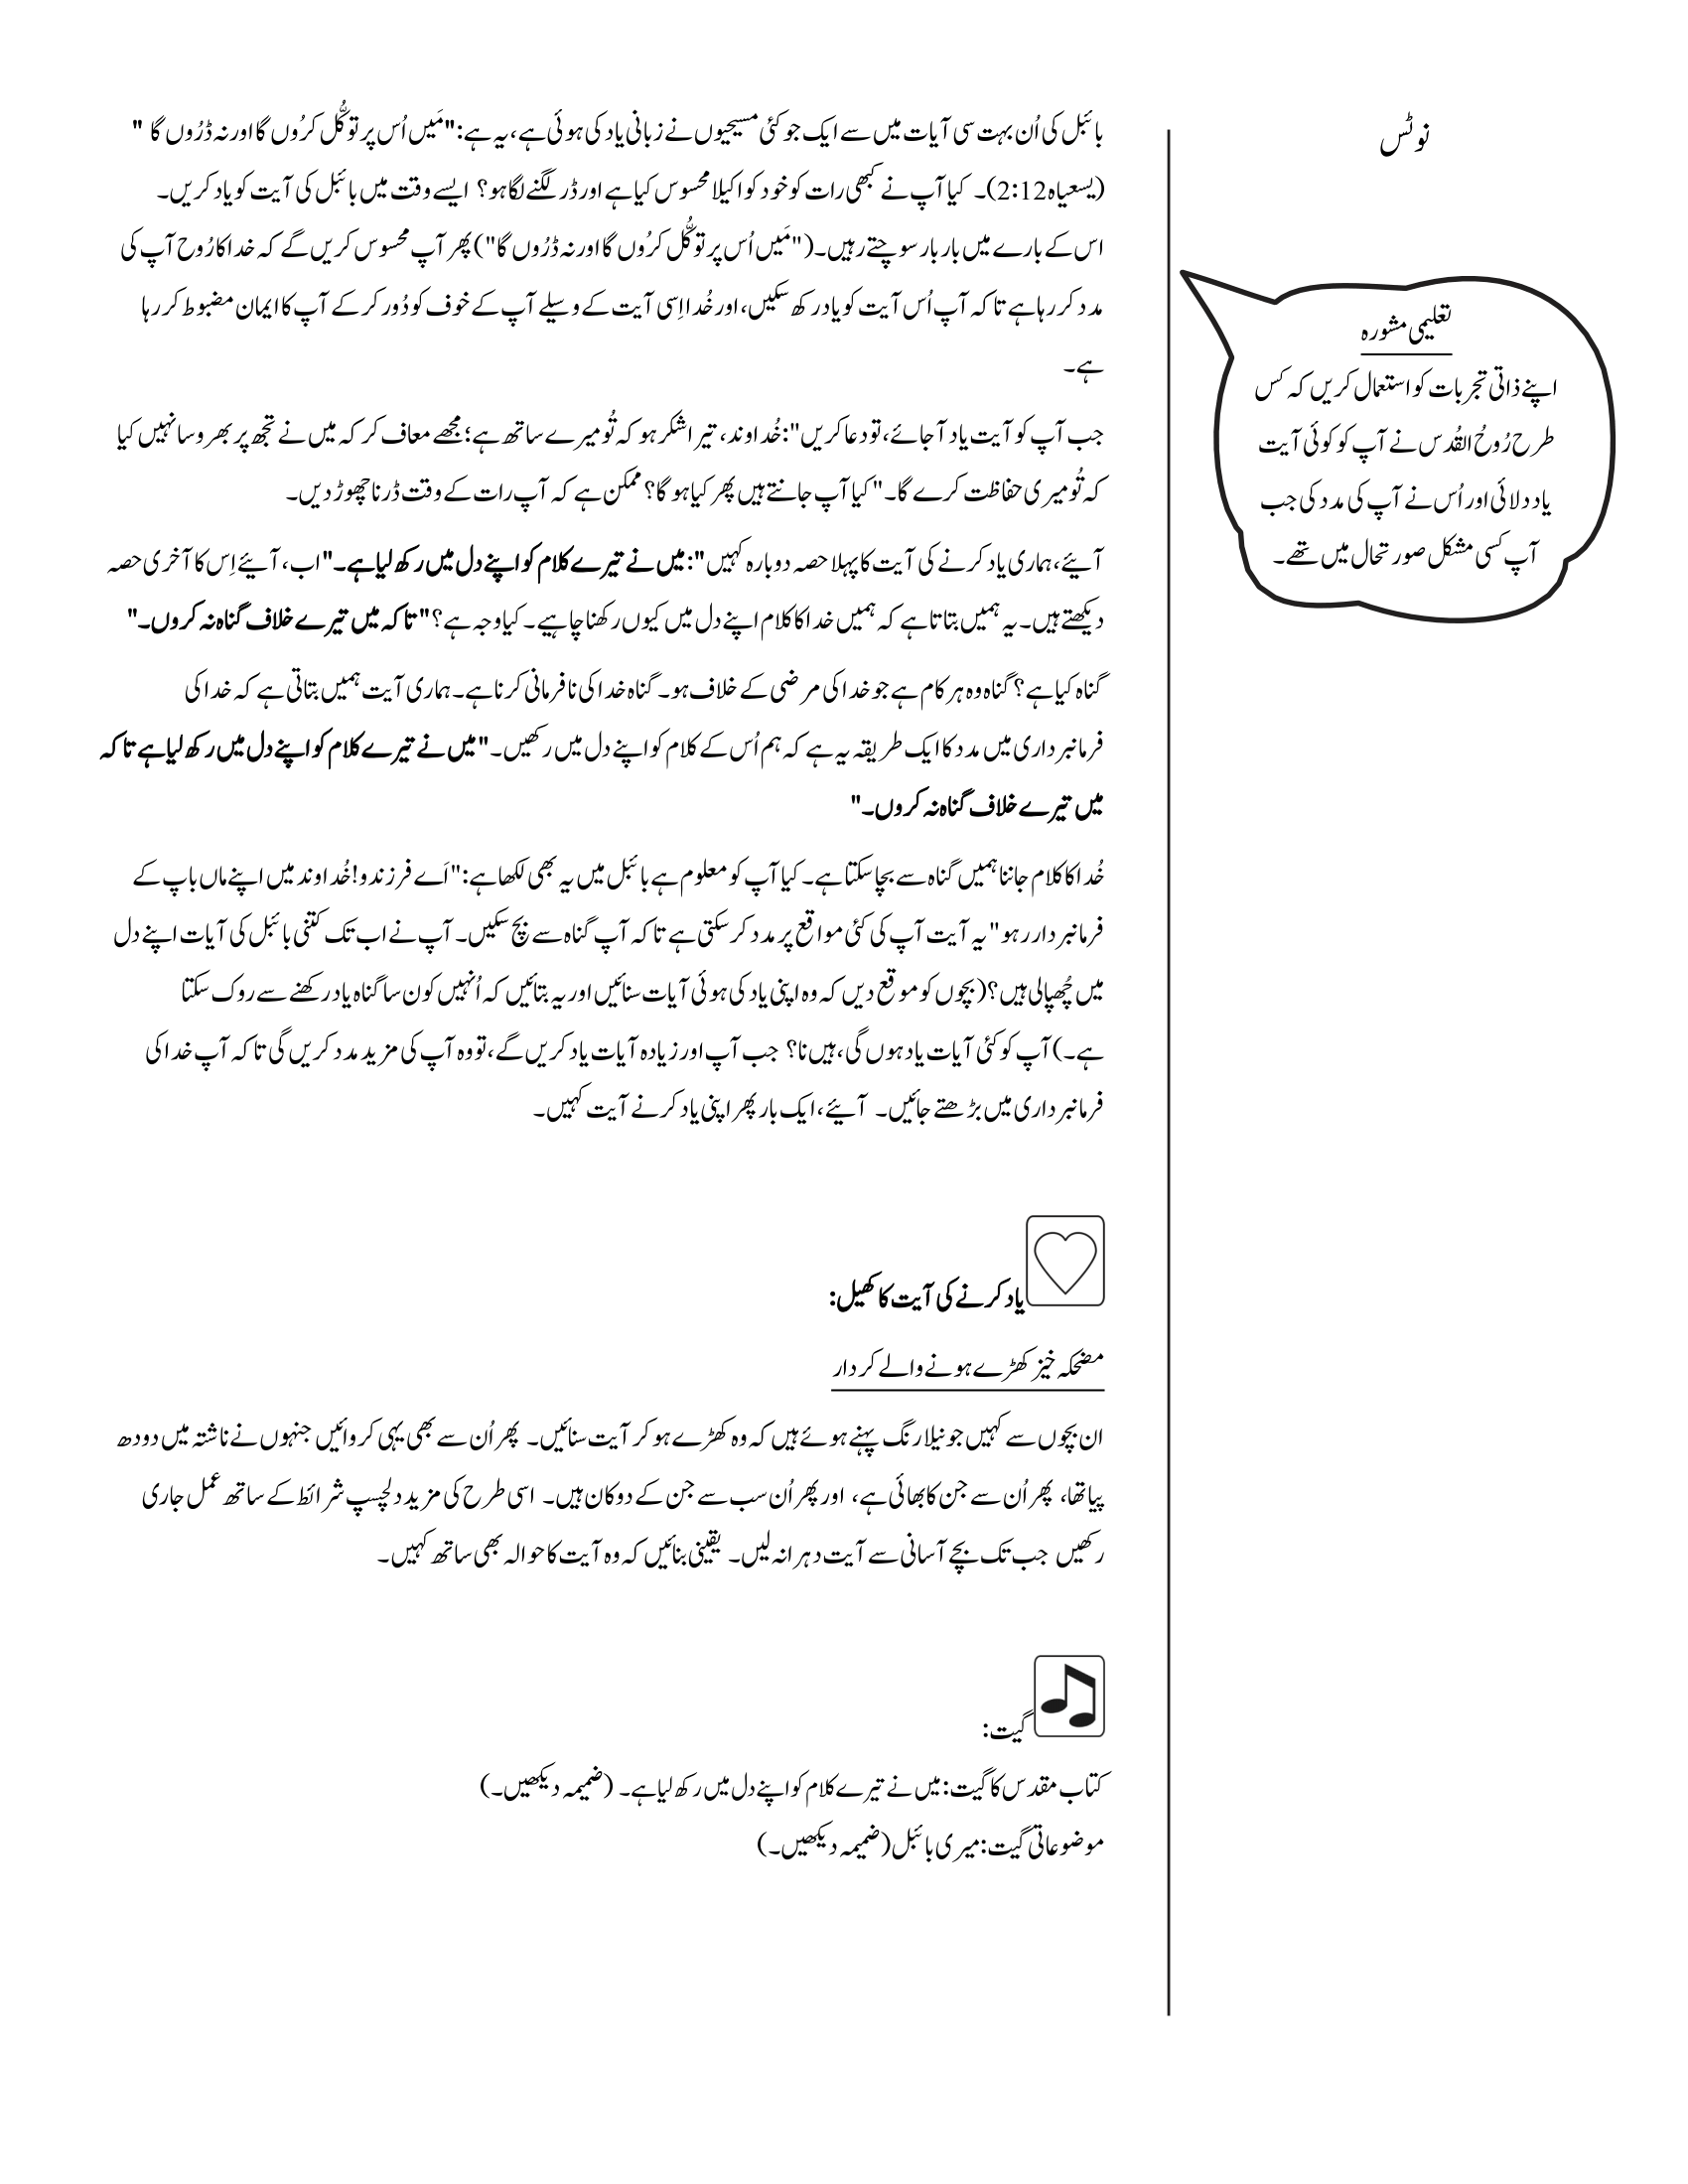 نوٹس
تعلیمی مشورہ
اپنے ذاتی تجربات کو استعمال کریں کہ کس
طرح رُوحُ القُدس نے آپ کو کوئی آیت
یاد دلائی اور اُس نے آپ کی مدد کی جب
آپ کسی مشکل صورتحال میں تھے۔
بائبل کی اُن بہت سی آیات میں سے ایک جو کئی مسیحیوں نے زبانی یاد کی ہوئی ہے، یہ ہے: "مَیں اُس پر توکُّل کرُوں گا اور نہ ڈرُوں گا "
(یسعیاہ 2:12)۔ کیا آپ نے کبھی رات کو خود کو اکیلا محسوس کیا ہے اور ڈر لگنے لگا ہو؟ ایسے وقت میں بائبل کی آیت کو یاد کریں۔
اس کے بارے میں بار بار سوچتے رہیں۔ ("مَیں اُس پر توکُّل کرُوں گا اور نہ ڈرُوں گا") پھر آپ محسوس کریں گے کہ خدا کا رُوح آپ کی
مدد کر رہا ہے تاکہ آپ اُس آیت کو یاد رکھ سکیں، اور خُدا اِسی آیت کے وسیلے آپ کے خوف کو دُور کر کے آپ کا ایمان مضبوط کر رہا
ہے۔
جب آپ کو آیت یاد آ جائے، تو دعا کریں": خُداوند، تیرا شکر ہو کہ تُو میرے ساتھ ہے؛ مجھے معاف کر کہ میں نے تجھ پر بھروسا نہیں کیا
کہ تُو میری حفاظت کرے گا۔" کیا آپ جانتے ہیں پھر کیا ہو گا؟ ممکن ہے کہ آپ رات کے وقت ڈرنا چھوڑ دیں۔
آیئے، ہماری یاد کرنے کی آیت کا پہلا حصہ دوبارہ کہیں": میں نے تیرے کلام کو اپنے دل میں رکھ لیا ہے۔" اب، آیئے اِس کا آخری حصہ
دیکھتے ہیں۔ یہ ہمیں بتاتا ہے کہ ہمیں خدا کا کلام اپنے دل میں کیوں رکھنا چاہیے۔ کیا وجہ ہے؟ "تاکہ میں تیرے خلاف گناہ نہ کروں۔"
گناہ کیا ہے؟ گناہ وہ ہر کام ہے جو خدا کی مرضی کے خلاف ہو۔ گناہ خدا کی نافرمانی کرنا ہے۔ ہماری آیت ہمیں بتاتی ہے کہ خدا کی
فرمانبرداری میں مدد کا ایک طریقہ یہ ہے کہ ہم اُس کے کلام کو اپنے دل میں رکھیں۔ "میں نے تیرے کلام کو اپنے دل میں رکھ لیا ہے تاکہ
میں تیرے خلاف گناہ نہ کروں۔"
خُدا کا کلام جاننا ہمیں گناہ سے بچا سکتا ہے۔ کیا آپ کو معلوم ہے بائبل میں یہ بھی لکھا ہے: "اَے فرزندو! خُداوند میں اپنے ماں باپ کے
فرمانبردار رہو" یہ آیت آپ کی کئی مواقع پر مدد کر سکتی ہے تاکہ آپ گناہ سے بچ سکیں۔ آپ نے اب تک کتنی بائبل کی آیات اپنے دل
میں چُھپا لی ہیں؟ (بچوں کو موقع دیں کہ وہ اپنی یاد کی ہوئی آیات سنائیں اور یہ بتائیں کہ اُنہیں کون سا گناہ یاد رکھنے سے روک سکتا
ہے۔) آپ کو کئی آیات یاد ہوں گی، ہیں نا؟ جب آپ اور زیادہ آیات یاد کریں گے، تو وہ آپ کی مزید مدد کریں گی تاکہ آپ خدا کی
فرمانبرداری میں بڑھتے جائیں۔ آیئے، ایک بار پھر اپنی یاد کرنے آیت کہیں۔
یاد کرنے کی آیت کا کھیل:
مضحکہ خیز کھڑے ہونے والے کردار
ان بچوں سے کہیں جو نیلا رنگ پہنے ہوئے ہیں کہ وہ کھڑے ہو کر آیت سنائیں۔ پھر اُن سے بھی یہی کروائیں جنہوں نے ناشتہ میں دودھ
پیا تھا، پھر اُن سے جن کا بھائی ہے، اور پھر اُن سب سے جن کے دو کان ہیں۔ اسی طرح کی مزید دلچسپ شرائط کے ساتھ عمل جاری
رکھیں جب تک بچے آسانی سے آیت دہرا نہ لیں۔ یقینی بنائیں کہ وہ آیت کا حوالہ بھی ساتھ کہیں۔
گیت:
کتاب مقدس کا گیت: میں نے تیرے کلام کو اپنے دل میں رکھ لیا ہے۔ (ضمیمہ دیکھیں۔)
موضوعاتی گیت: میری بائبل (ضمیمہ دیکھیں۔)